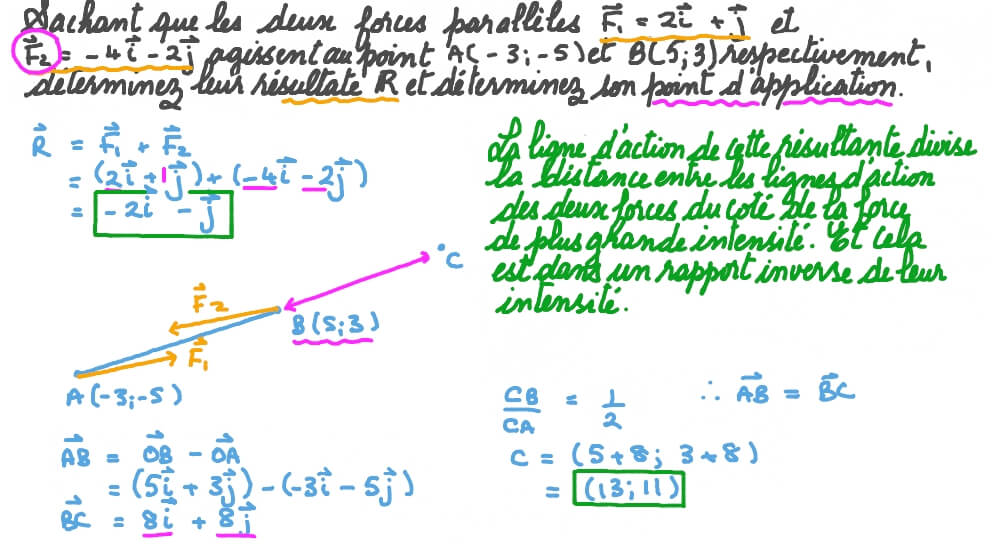 Sachant que les deux forces parallèles F⃗₁ = 2i⃗ + j⃗ et
F⃗₂ = -4i⃗ - 2j⃗ agissent au point A(-3;-5) et B(5;3) respectivement,
déterminez leur résultate R et détérminez son point d'application.
R⃗ = F⃗₁ + F⃗₂
= (2i⃗ + 1j⃗) + (-4i⃗ - 2j⃗)
= -2i⃗ - j⃗
La ligne d'action de cette résultante divise
la distance entre les lignes d'action
des deux forces du coté de la force
de plus grande intensité. Et cela
est dans un rapport inverse de leur
intensité.
C
F⃗₂
B(5;3)
F⃗₁
A(-3;-5)
AB⃗ = OB⃗ - OA⃗
= (5i⃗ + 3j⃗) - (-3i⃗ - 5j⃗)
BC⃗ = 8i⃗ + 8j⃗
CB/CA = 1/2 ∴ AB⃗ = BC⃗
C = (5+8; 3+8)
= (13;11)